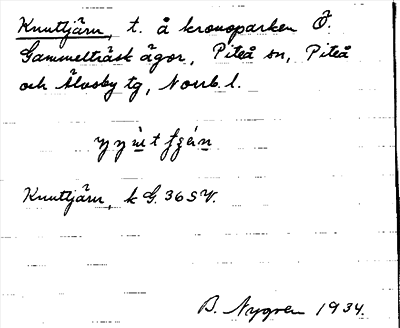 Knuttjärn, t. å kronoparken Ö.
Gammelträsk ägor, Piteå sn, Piteå
och Älvsby tg, Norrb. l.
Knuttjärn, k G. 36 SV.
B. Nygren 1934.